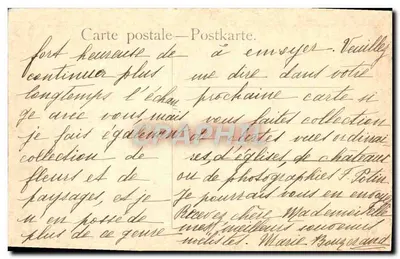 Carte postale — Postkarte.
fort heureuse de
continuer plus
longtemps l'échan
ge avec vous, mais
je fais également
collection de
fleurs et de
paysages, et je
n'en possède
plus de ce genre
à envoyer. Veuillez
me dire dans votre
prochaine carte si
vous faites collection
de cartes vues ordinai
res, d'églises, de châteaux
ou de photographies F. Potin
je pourrais vous en envoyer
Recevez chère Mademoiselle
mes meilleurs souvenirs
Marie